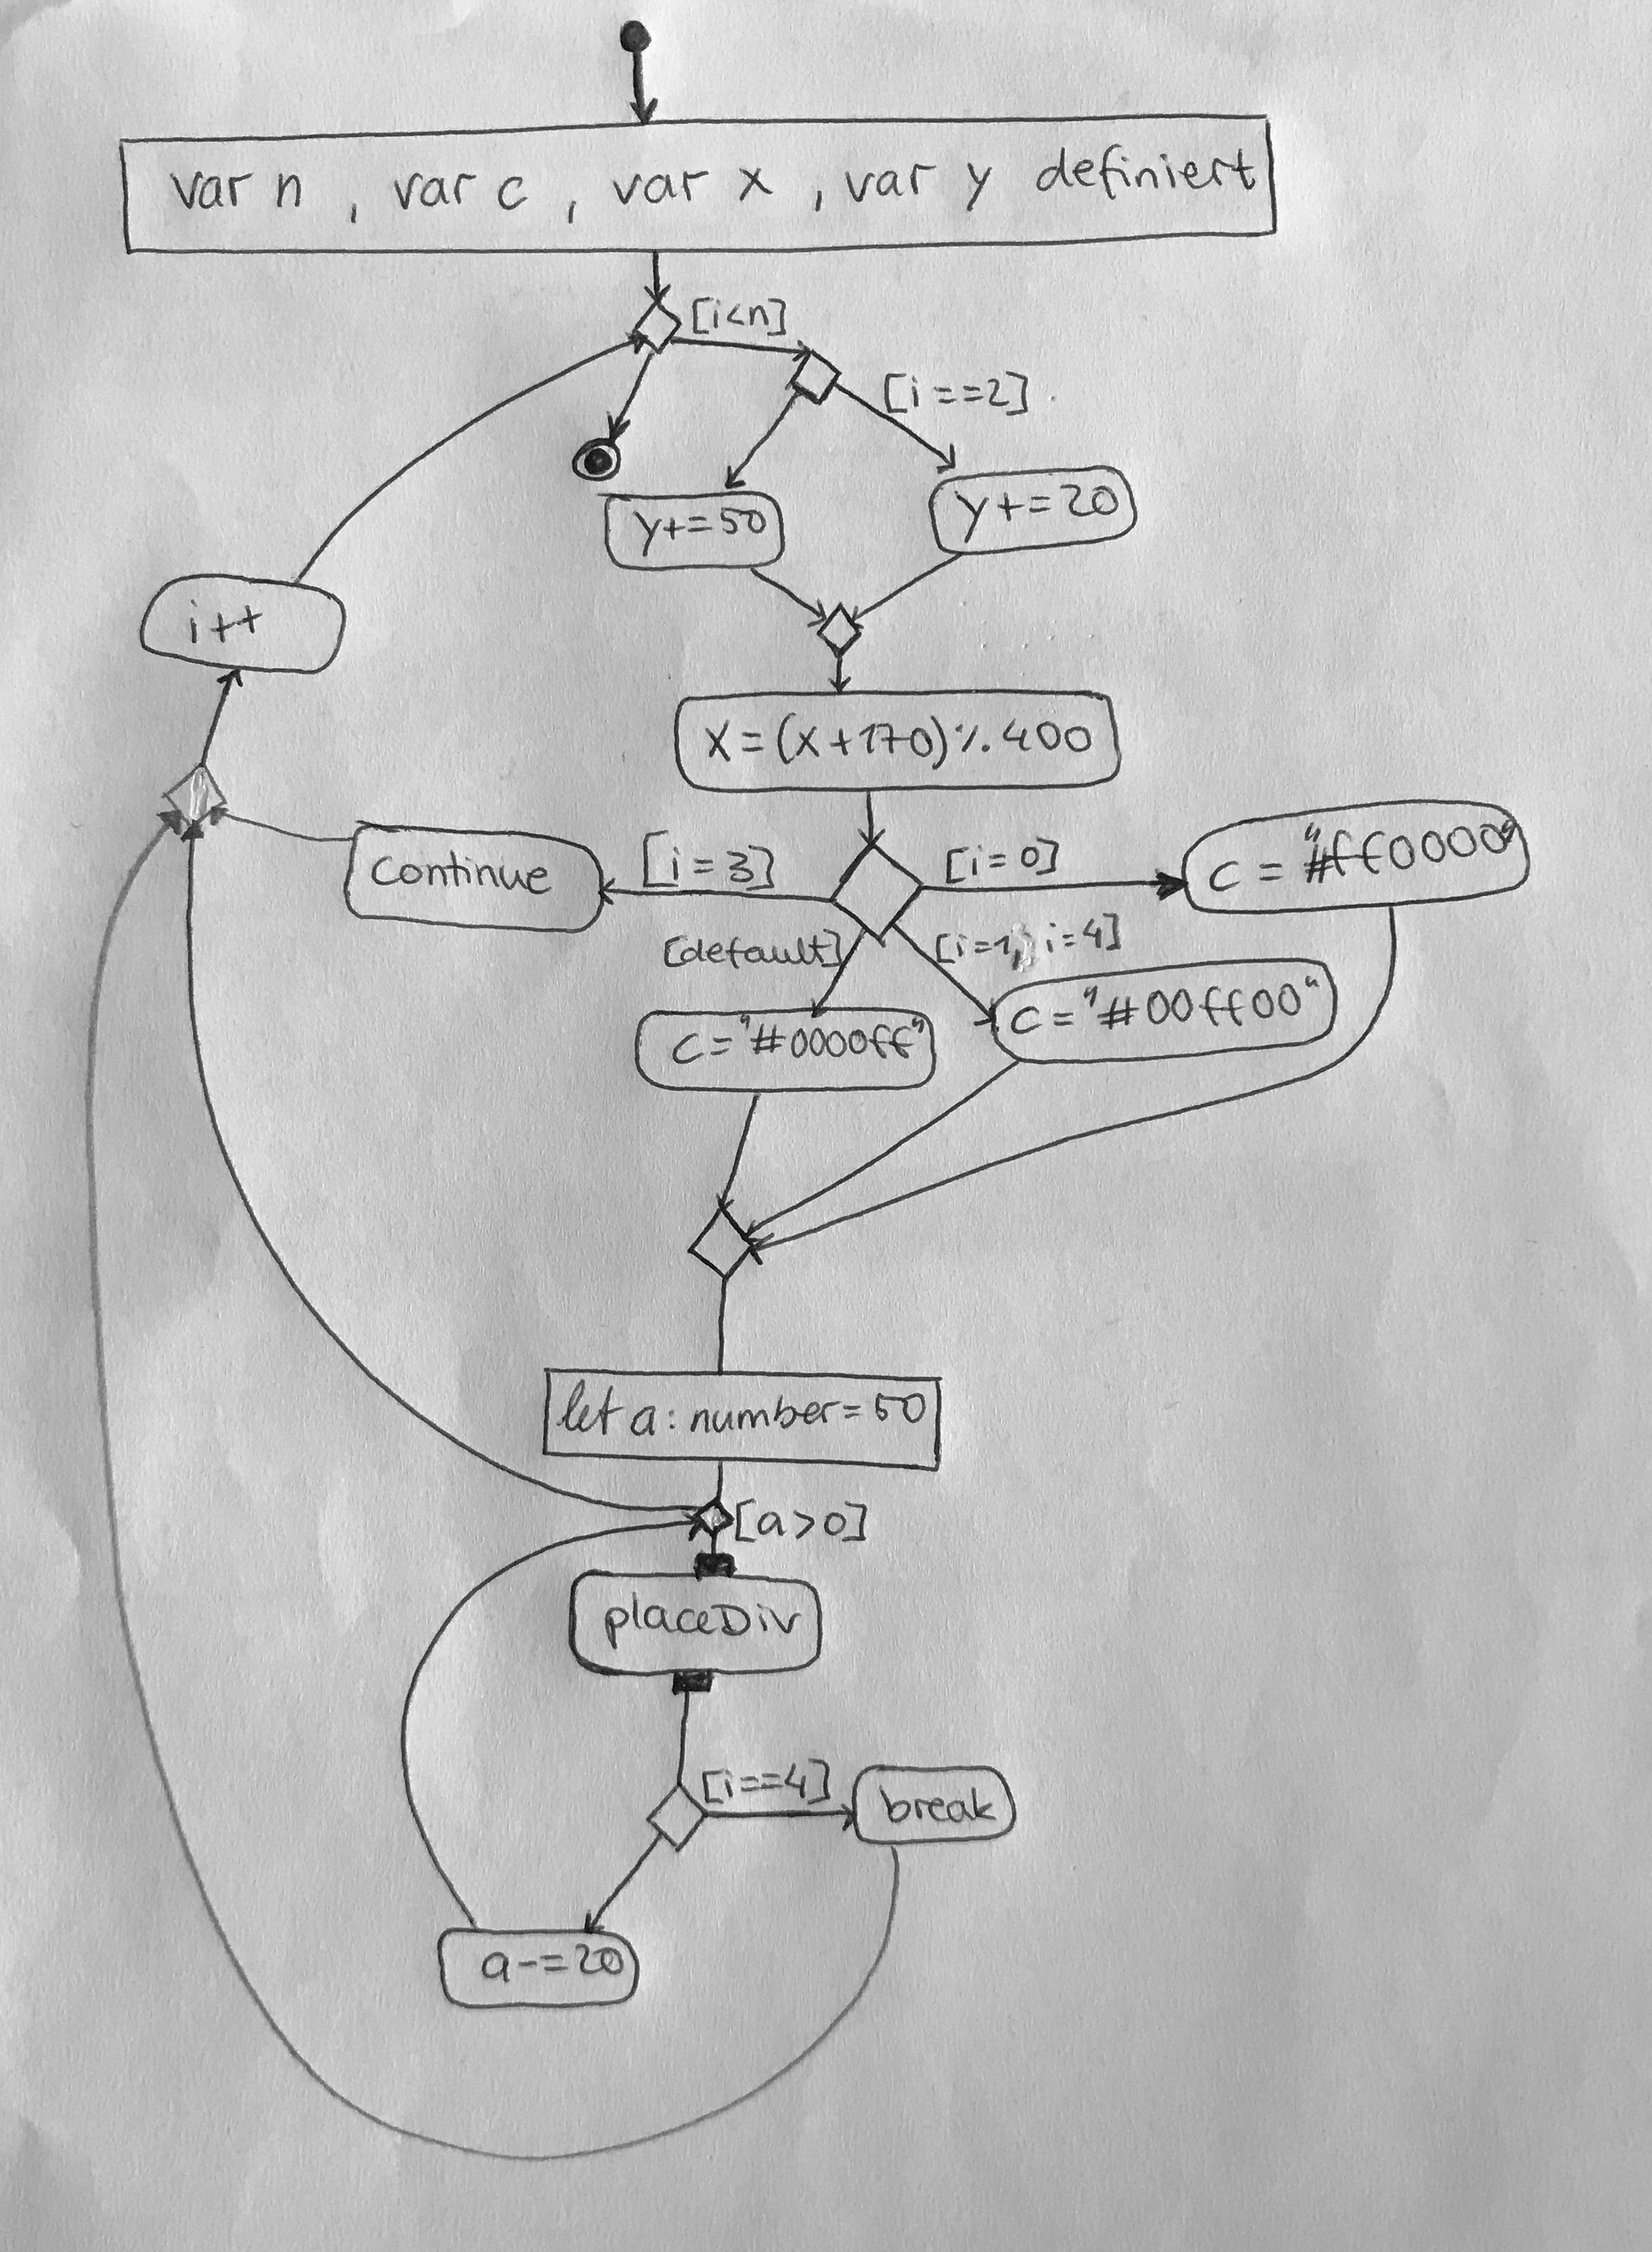 var n , var c , var x , var y definiert
[i<n]
[i==2]
y+=50
y+=20
i++
x=(x+170)%400
continue
[i=3]
[i=0]
c = "#ff0000"
[default]
[i=1, i=4]
c="#0000ff"
c="#00ff00"
let a: number=50
[a>0]
placeDiv
[i==4]
break
a-=20